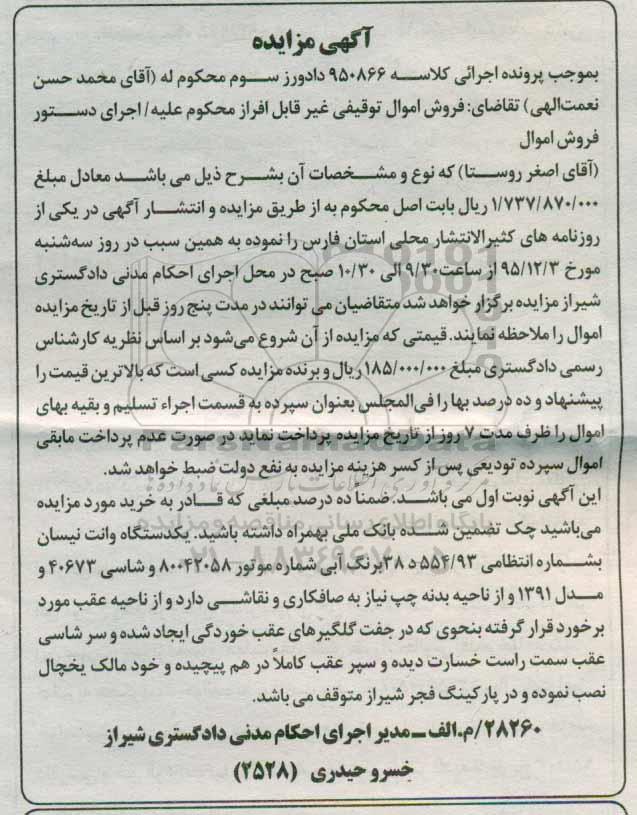 آگهی مزایده
بموجب پرونده اجرائی کلاسه ۹۵۰۸۶۶ دادورز سوم محکوم له (آقای محمد حسن
نعمت‌الهی) تقاضای: فروش اموال توقیفی غیر قابل افراز محکوم علیه/ اجرای دستور
فروش اموال
(آقای اصغر روستا) که نوع و مشخصات آن بشرح ذیل می باشد معادل مبلغ
۱/۷۳۷/۸۷۰/۰۰۰ ریال بابت اصل محکوم به از طریق مزایده و انتشار آگهی در یکی از
روزنامه های کثیرالانتشار محلی استان فارس را نموده به همین سبب در روز سه‌شنبه
مورخ ۹۵/۱۲/۳ از ساعت ۹/۳۰ الی ۱۰/۳۰ صبح در محل اجرای احکام مدنی دادگستری
شیراز مزایده برگزار خواهد شد متقاضیان می توانند در مدت پنج روز قبل از تاریخ مزایده
اموال را ملاحظه نمایند. قیمتی که مزایده از آن شروع می‌شود بر اساس نظریه کارشناس
رسمی دادگستری مبلغ ۱۸۵/۰۰۰/۰۰۰ ریال و برنده مزایده کسی است که بالاترین قیمت را
پیشنهاد و ده درصد بها را فی‌المجلس بعنوان سپرده به قسمت اجراء تسلیم و بقیه بهای
اموال را ظرف مدت ۷ روز از تاریخ مزایده پرداخت نماید در صورت عدم پرداخت مابقی
اموال سپرده تودیعی پس از کسر هزینه مزایده به نفع دولت ضبط خواهد شد.
این آگهی نوبت اول می باشد. ضمنا ده درصد مبلغی که قادر به خرید مورد مزایده
می‌باشید چک تضمین شده بانک ملی بهمراه داشته باشید. یکدستگاه وانت نیسان
بشماره انتظامی ۵۵۴/۹۳ د ۳۸ برنگ آبی شماره موتور ۸۰۰۴۲۰۵۸ و شاسی ۴۰۶۷۳ و
مدل ۱۳۹۱ و از ناحیه بدنه چپ نیاز به صافکاری و نقاشی دارد و از ناحیه عقب مورد
برخورد قرار گرفته بنحوی که در جفت گلگیرهای عقب خوردگی ایجاد شده و سر شاسی
عقب سمت راست خسارت دیده و سپر عقب کاملاً در هم پیچیده و خود مالک یخچال
نصب نموده و در پارکینگ فجر شیراز متوقف می باشد.
۲۸۲۶۰/م.الف ـ مدیر اجرای احکام مدنی دادگستری شیراز
خسرو حیدری (۲۵۲۸)